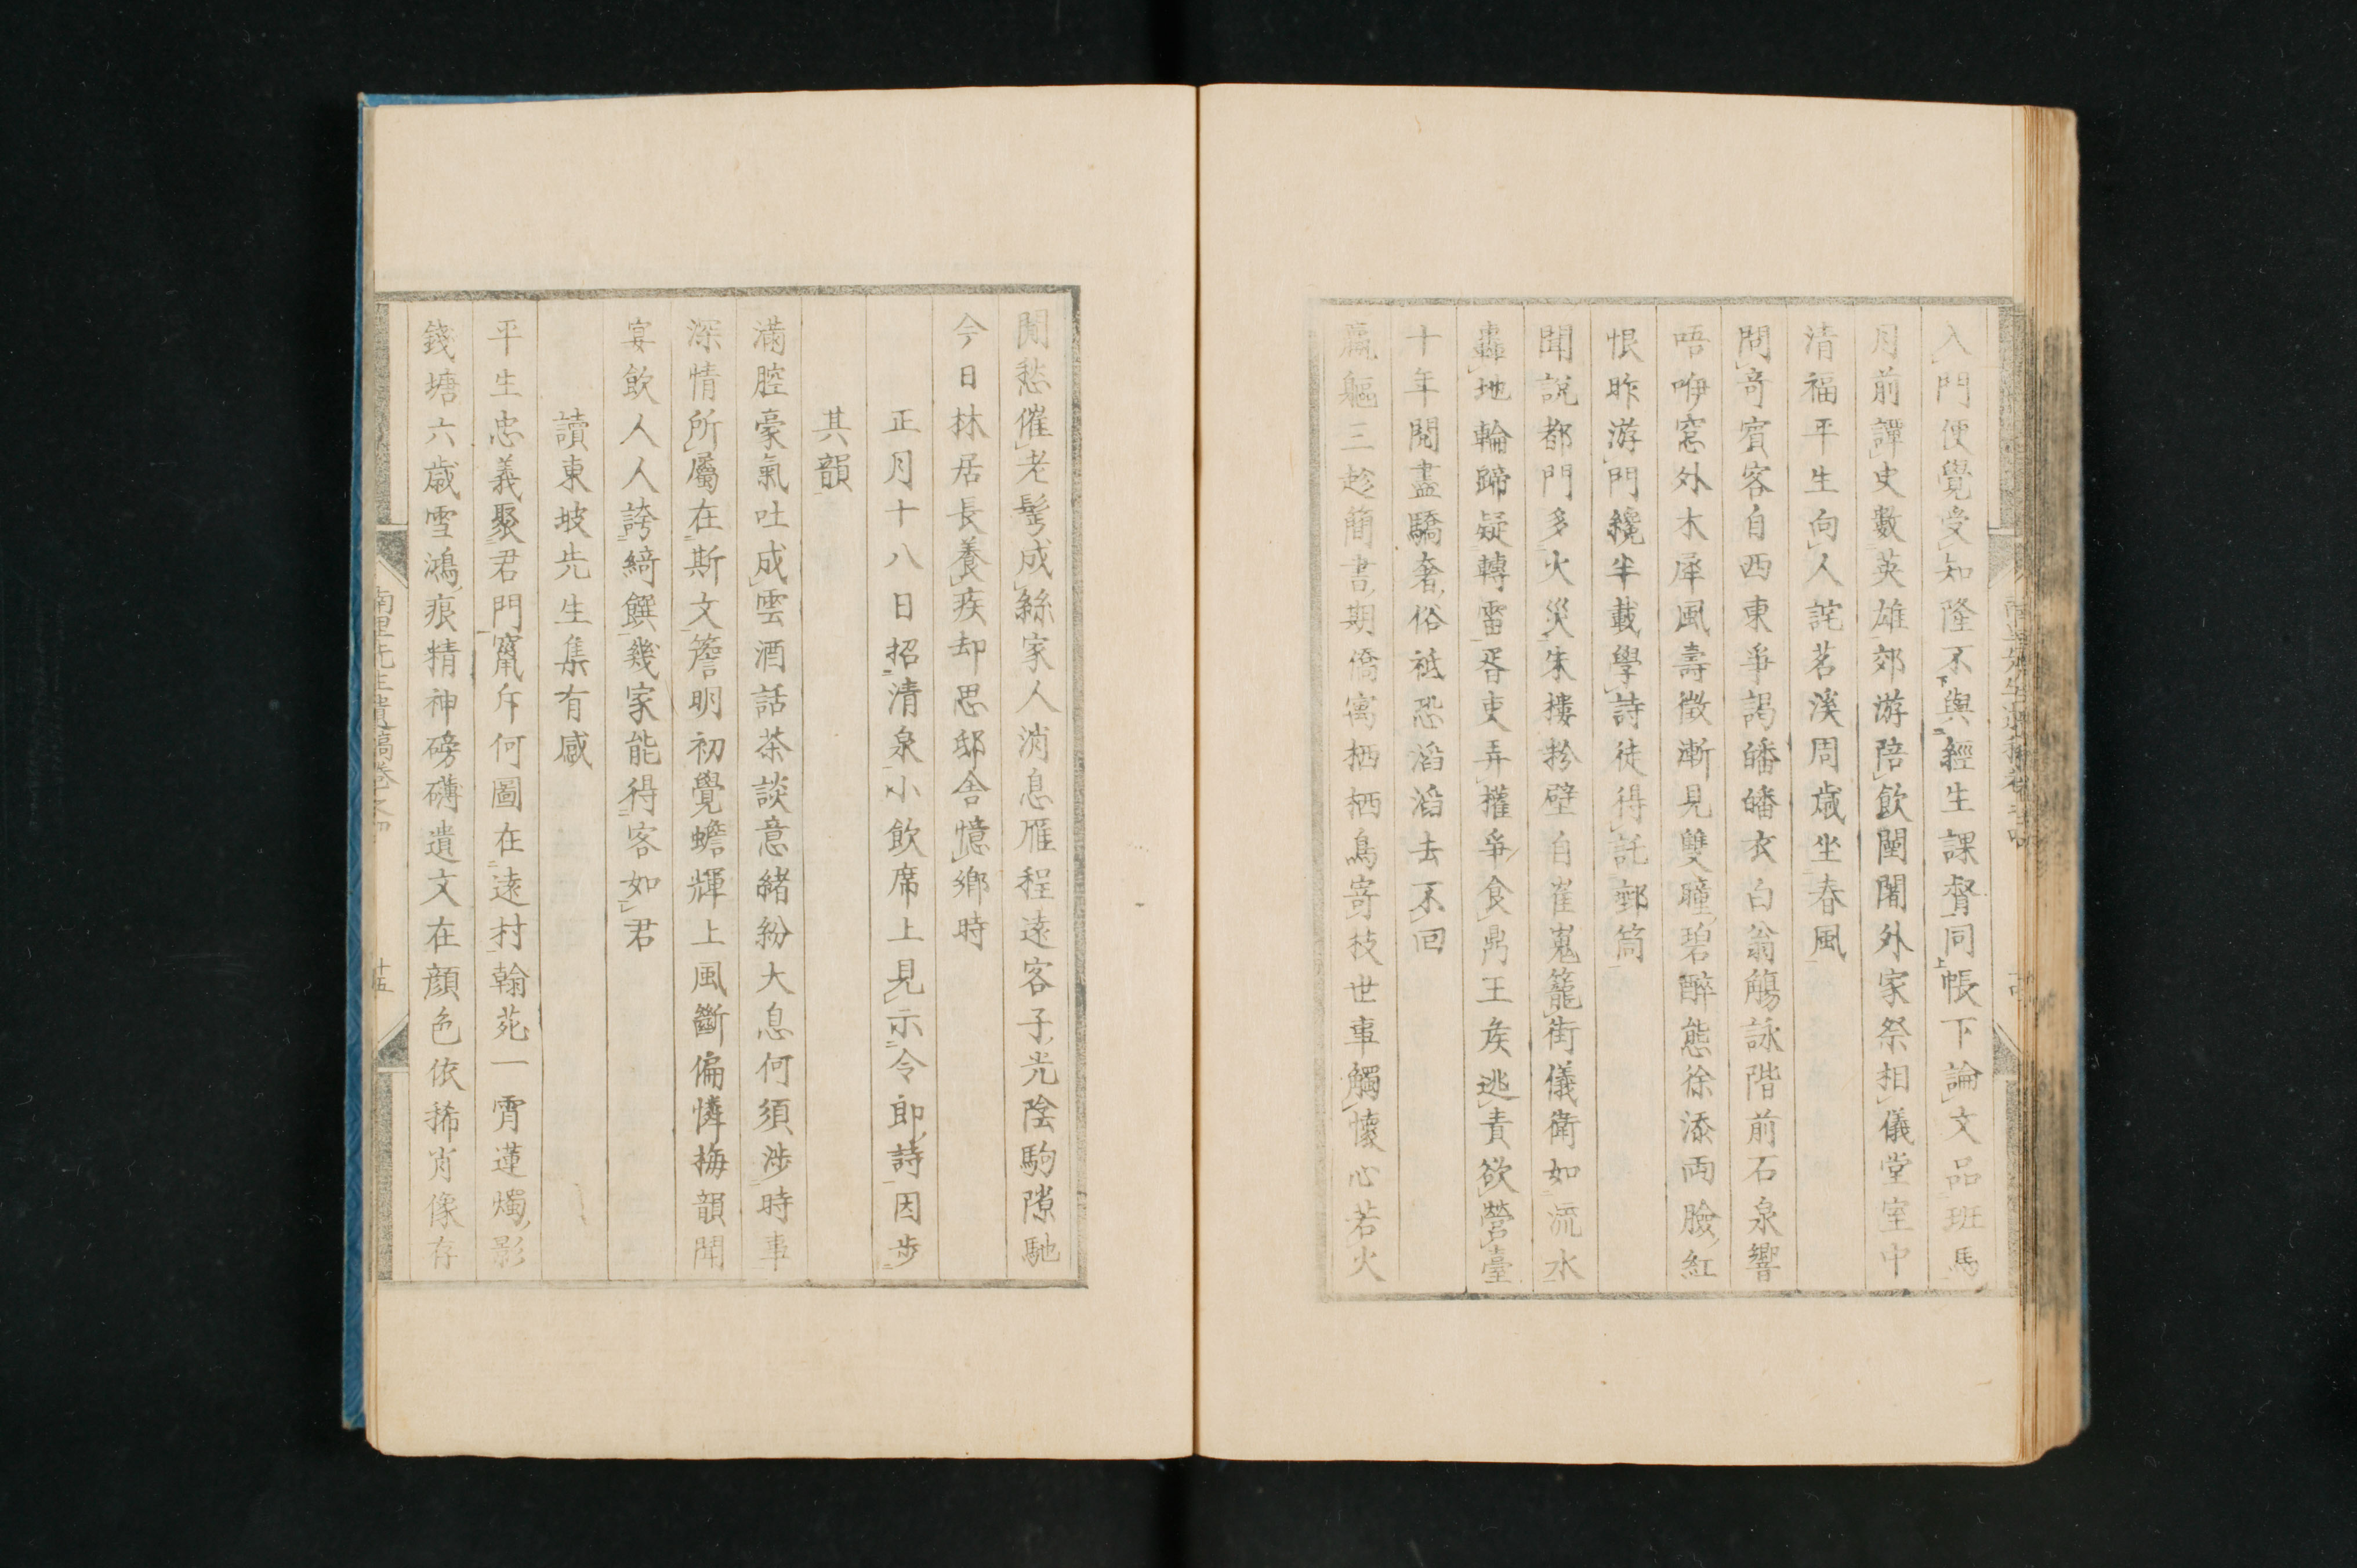 入門便覺受知隆不與經生課督同帳下論文品班馬
月前譚史數英雄郊游陪飲闉闍外家祭相儀堂室中
清福平生向人詫茗溪周歳坐春風
問奇賓客自西東爭謁皤皤衣白翁觴詠階前石泉響
唔咿窓外木犀風壽徴漸見雙瞳碧醉態徐添両臉紅
恨昨游門纔半載學詩徒得託郵筒
聞説都門多火災朱樓粉壁自崔嵬籠街儀衛如流水
轟地輪蹄疑轉雷胥吏弄權爭食鼎王矦逃責欲營臺
十年閲盡驕奢俗祗恐滔滔去不回
羸軀三趁簡書期僑寓栖栖鳥寄枝世事觸懐心若火
閒愁催老鬂成絲家人消息雁程遠客子光陰駒隙馳
今日林居長養疾却思邸舎憶鄉時
正月十八日招清泉小飲席上見示令郎詩因歩
其韻
滿腔豪氣吐成雲酒話茶談意緒紛大息何須渉時事
深情所屬在斯文簷明初覺蟾輝上風斷偏憐梅韻聞
宴飲人人誇綺饌幾家能得客如君
讀東坡先生集有感
平生忠義聚君門竄斥何圖在遠村翰苑一宵蓮燭影
錢塘六歳雪鴻痕精神磅礴遺文在顔色依稀肖像存
南里先生遺稿巻之四
十五